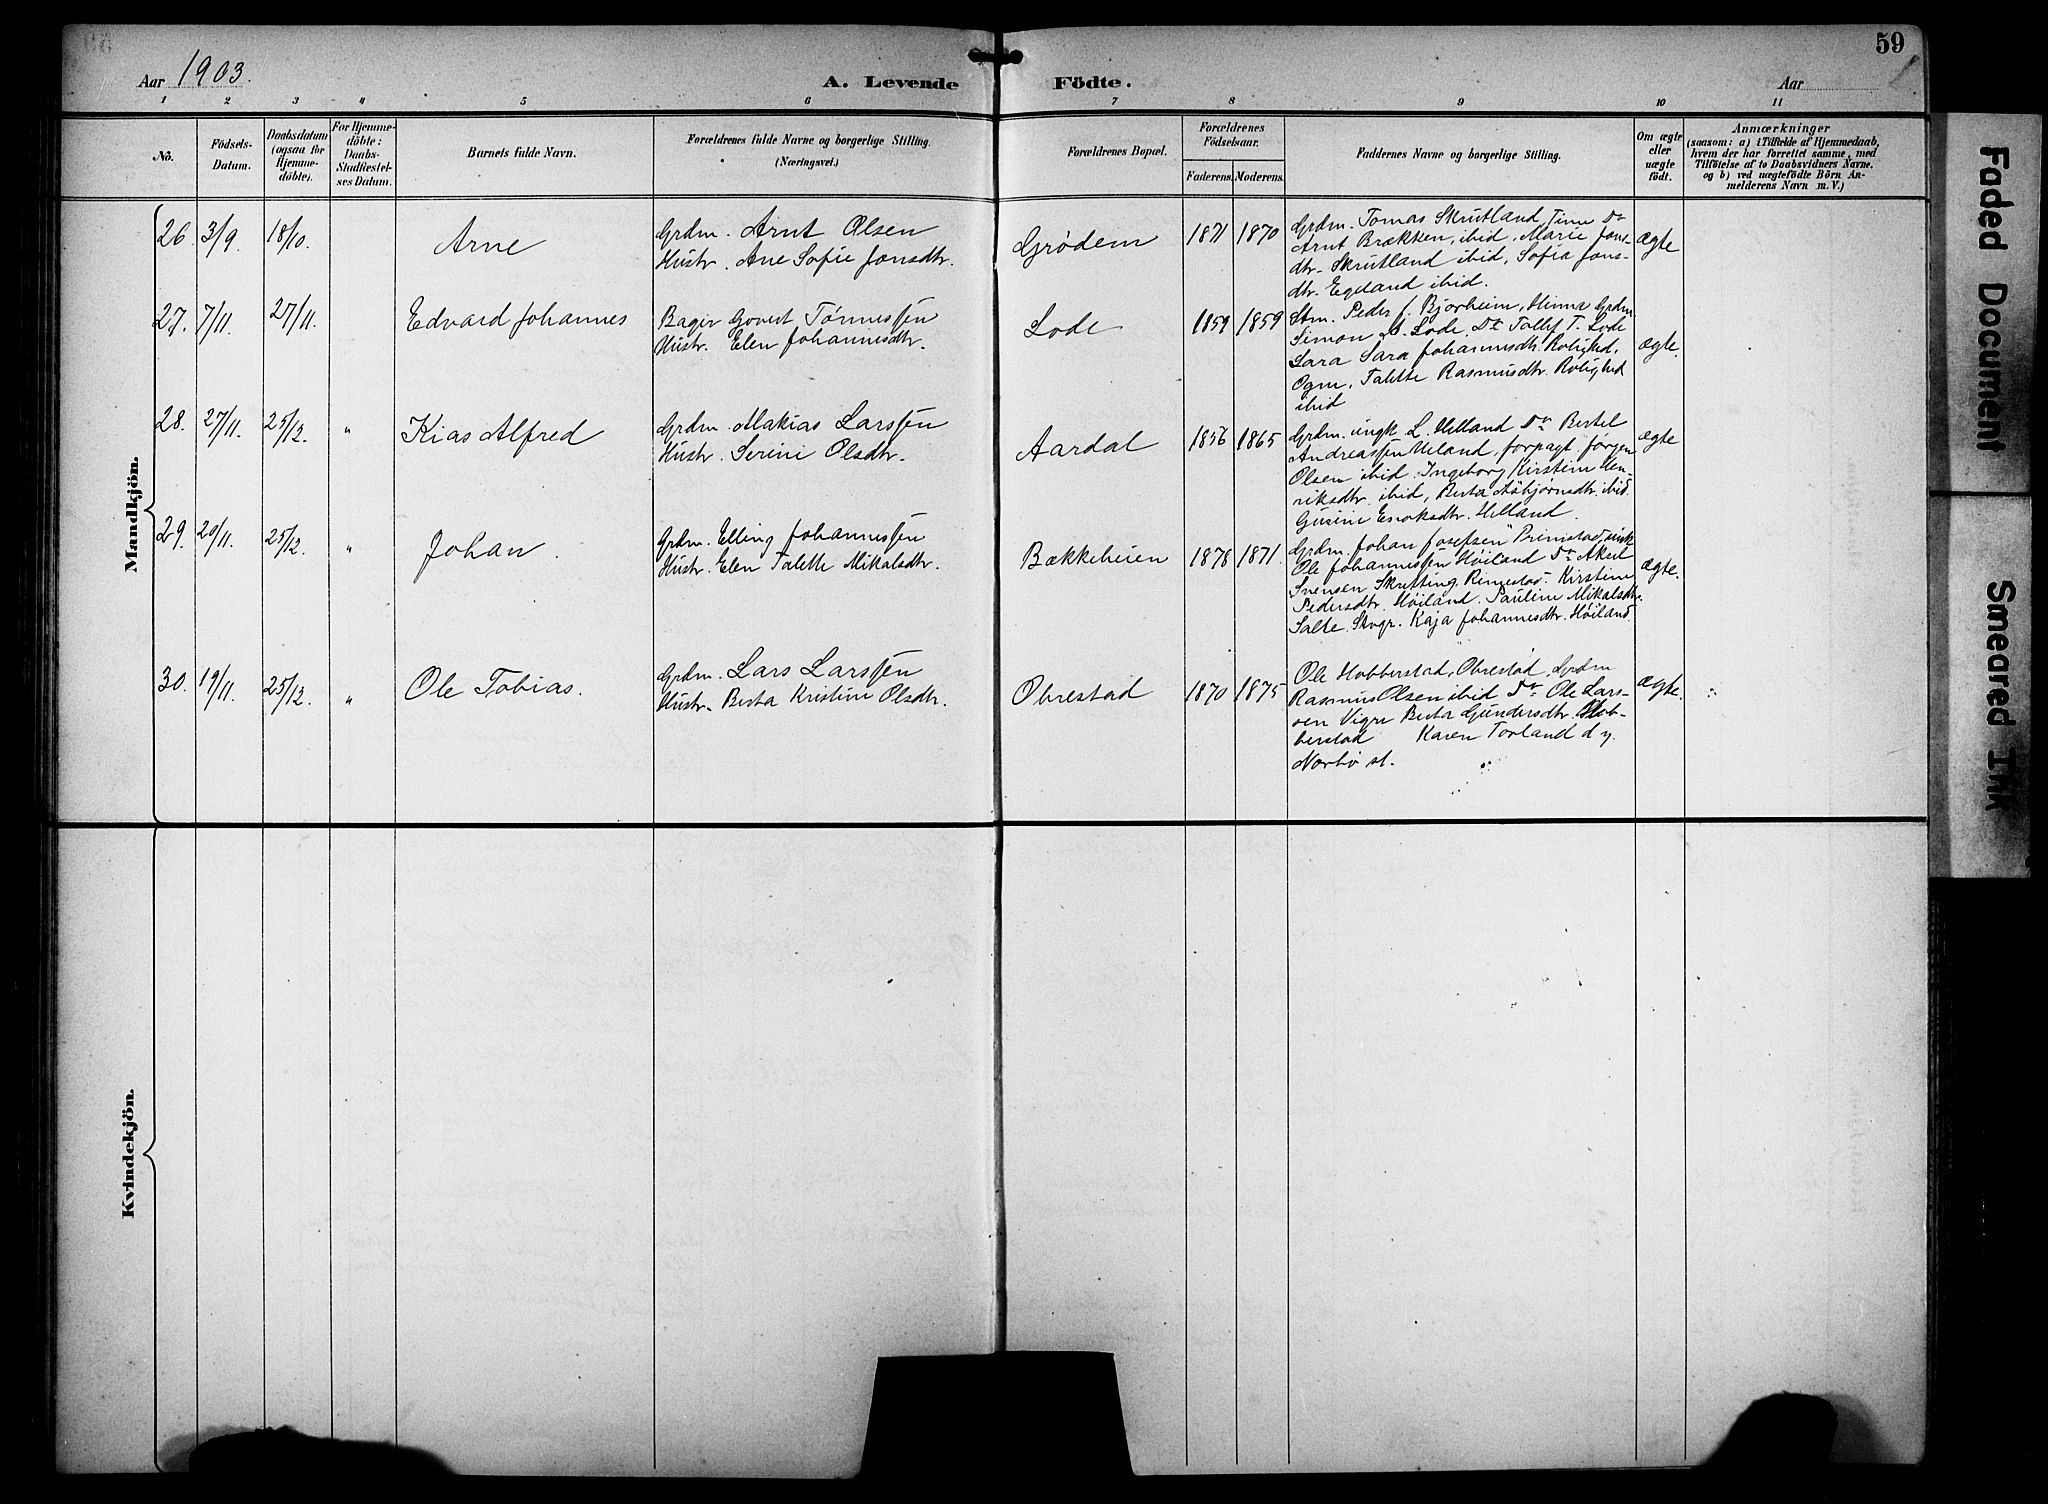 59
Aar 1903.
A. Levende Födte.
Aar
1 2 3 4 5 6 7 8 9 10 11
No.
Födsels-
Datum.
Daabsdatum
(ogsaa for
Hjemme-
döbte).
For Hjemme-
döbte:
Daabs-
Stadfæstel-
ses Datum.
Barnets fulde Navn.
Forældrenes fulde Navne og borgerlige Stilling.
(Næringsvei.)
Forældrenes Bopæl.
Forældrenes
Födselsaar.
Faderens. Moderens.
Faddernes Navne og borgerlige Stilling.
Om ægte
eller
uægte
födt.
Anmærkninger
(saasom: a) i Tilfælde af Hjemmedaab,
hvem der har forrettet samme, med
Tilföielse af to Daabsvidners Navne,
og b) ved uægtefödte Börn An-
melderens Navn m. V.)
Mandkjön.
26. 3/9. 18/10. Arne
Grdm. Arnt Olsen
Hustr. Ane Sofie Jonsdtr.
Grødem 1871 1870
Grdm. Tomas Skrutland, Time Do
Arnt Brækken, ibid, Marie Jons-
dtr. Skrutland ibid, Sofia Jons-
dtr. Egeland ibid.
ægte
27. 7/11. 27/11. Edvard Johannes
Bager Govert Tønnessen
Hustr. Elen Johannesdtr.
Lode 1859 1859
Stm. Peder J. Bjorheim, Hinna Grdm
Simon Lode, Do Tallef T. Lode
Sara Sara Johannesdtr. Rolighed,
Ogm, Talette Rasmusdtr. Rolighed
ibid
ægte.
28. 27/11. 25/12. " Kias Alfred
Grdm. Makias Larssen
Hustr. Serine Olsdtr.
Aardal 1856 1865
Grdm. ungk L. Helland Do Bertel
Andreassen Ueland, forpagt. Jørgen
Olsen ibid. Ingeborg Kirstine Hen-
riksdtr. ibid, Berta Asbjørnsdtr. ibid.
Gurine Enoksdtr. Helland.
ægte
29. 20/11. 25/12. " Johan.
Grdm. Elling Johannessen
Hustr. Elen Talette Mikalsdtr.
Bækkeheien 1878 1871.
Grdm. Johan Josefsen Primstad, unk
Ole Johannessen Høiland Do Aksel
Svensen Skretting, Rimestad. Kirstine
Pedersdtr. Høiland. Pauline Mikalsdtr.
Salte. Skogr. Kaja Johannesdtr. Høiland.
ægte.
30. 19/11. 25/12. " Ole Tobias.
Grdm. Lars Larssen
Hustr. Berta Kristine Olsdtr.
Obrestad 1870 1875
Ole Hobberstad, Obrestad, Grdm
Rasmus Olsen ibid Do Ole Lars-
sen Vigre Berta Gundersdtr. Hob-
berstad Karen Torland d y.
Nærbø st.
ægte.
Kvindekjön.
Faded Document
Smeared Ink